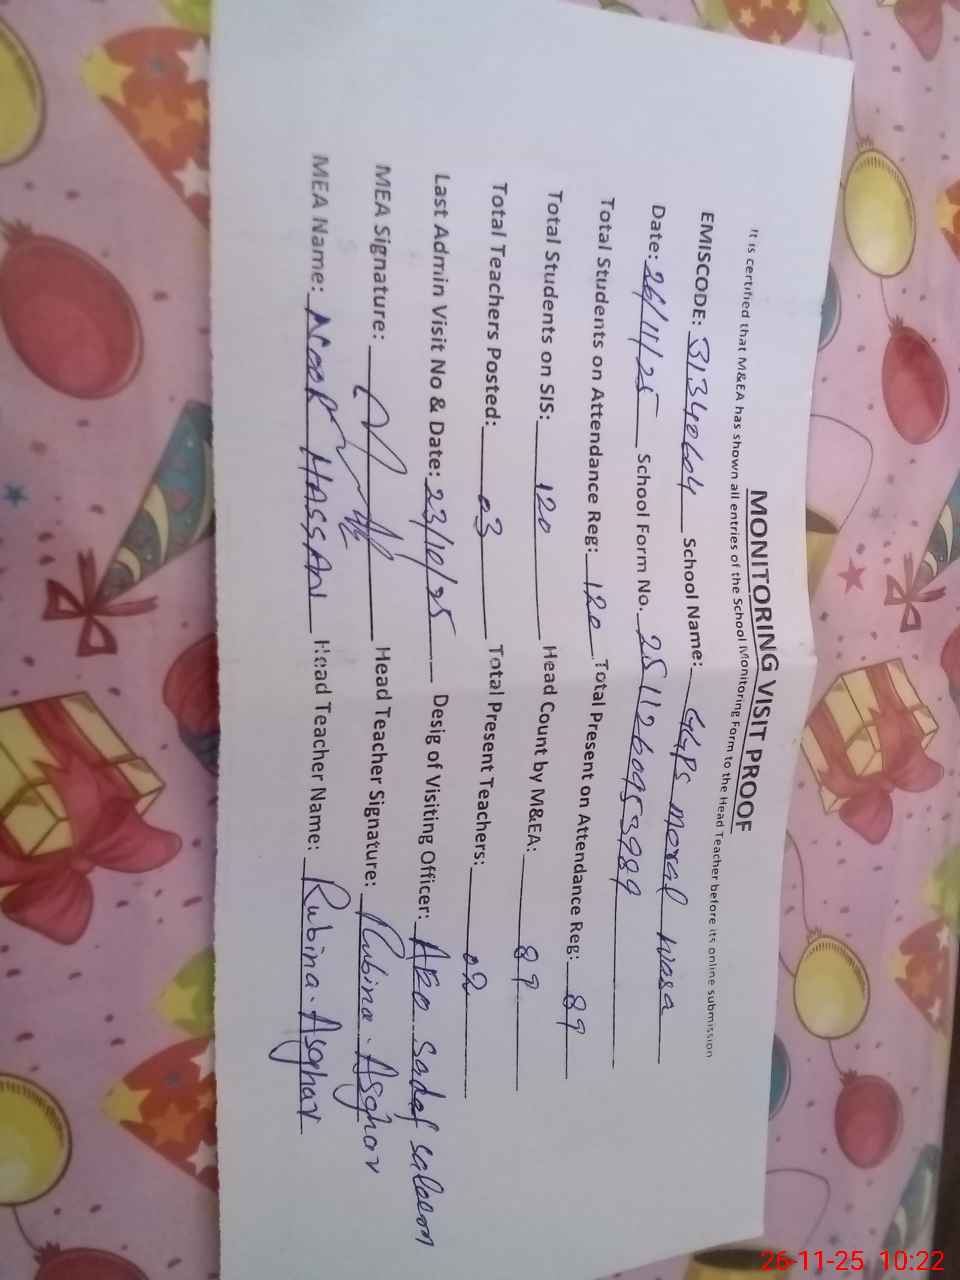 MONITORING VISIT PROOF
It is certified that M&EA has shown all entries of the School Monitoring Form to the Head Teacher before its online submission
EMISCODE: 31340604 School Name: GGPS Moral Wasa
Date: 26/11/25 School Form No. 2511260953989
Total Students on Attendance Reg: 120 Total Present on Attendance Reg: 89
Total Students on SIS: 120 Head Count by M&EA: 89
Total Teachers Posted: 03 Total Present Teachers: 02
Last Admin Visit No & Date: 23/10/25 Desig of Visiting Officer: AEO Sadaf Saleem
MEA Signature: Head Teacher Signature: Rubina. Asghar
MEA Name: HASSAN Head Teacher Name: Rubina. Asghar
26-11-25 10:22